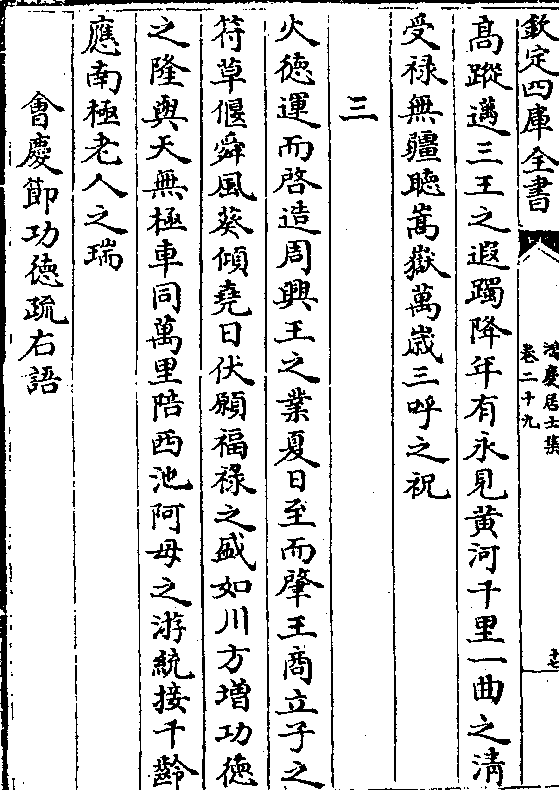 欽定四庫全書
鴻慶居士集
卷二十九
十七
高蹤邁三王之遐躅降年有永見黄河千里一曲之清
受禄無疆聽嵩嶽萬嵗三呼之祝
三
火德運而啓造周興王之業夏日至而肇王商立子之
符草偃舜風葵傾堯日伏願福禄之盛如川方增功德
之隆與天無極車同萬里陪西池阿母之游統接千齡
應南極老人之瑞
會慶節功德疏右語